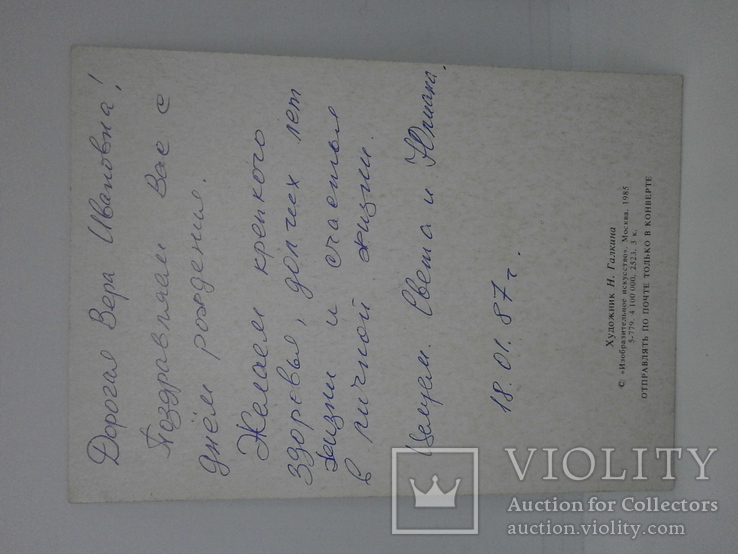 Дорогая Вера Ивановна!
Поздравляем Вас с
днём рождения.
Желаем крепкого
здоровья, долгих лет
жизни и счастья
в личной жизни.
Целуем. Света и Юлиана.
18.01.87 г.
Художник Н. Галкина
© «Изобразительное искусство», Москва. 1985
5-779. 4 100 000. 2523. 3 к.
ОТПРАВЛЯТЬ ПО ПОЧТЕ ТОЛЬКО В КОНВЕРТЕ
VIOLITY
Auction for Collectors
auction.violity.com